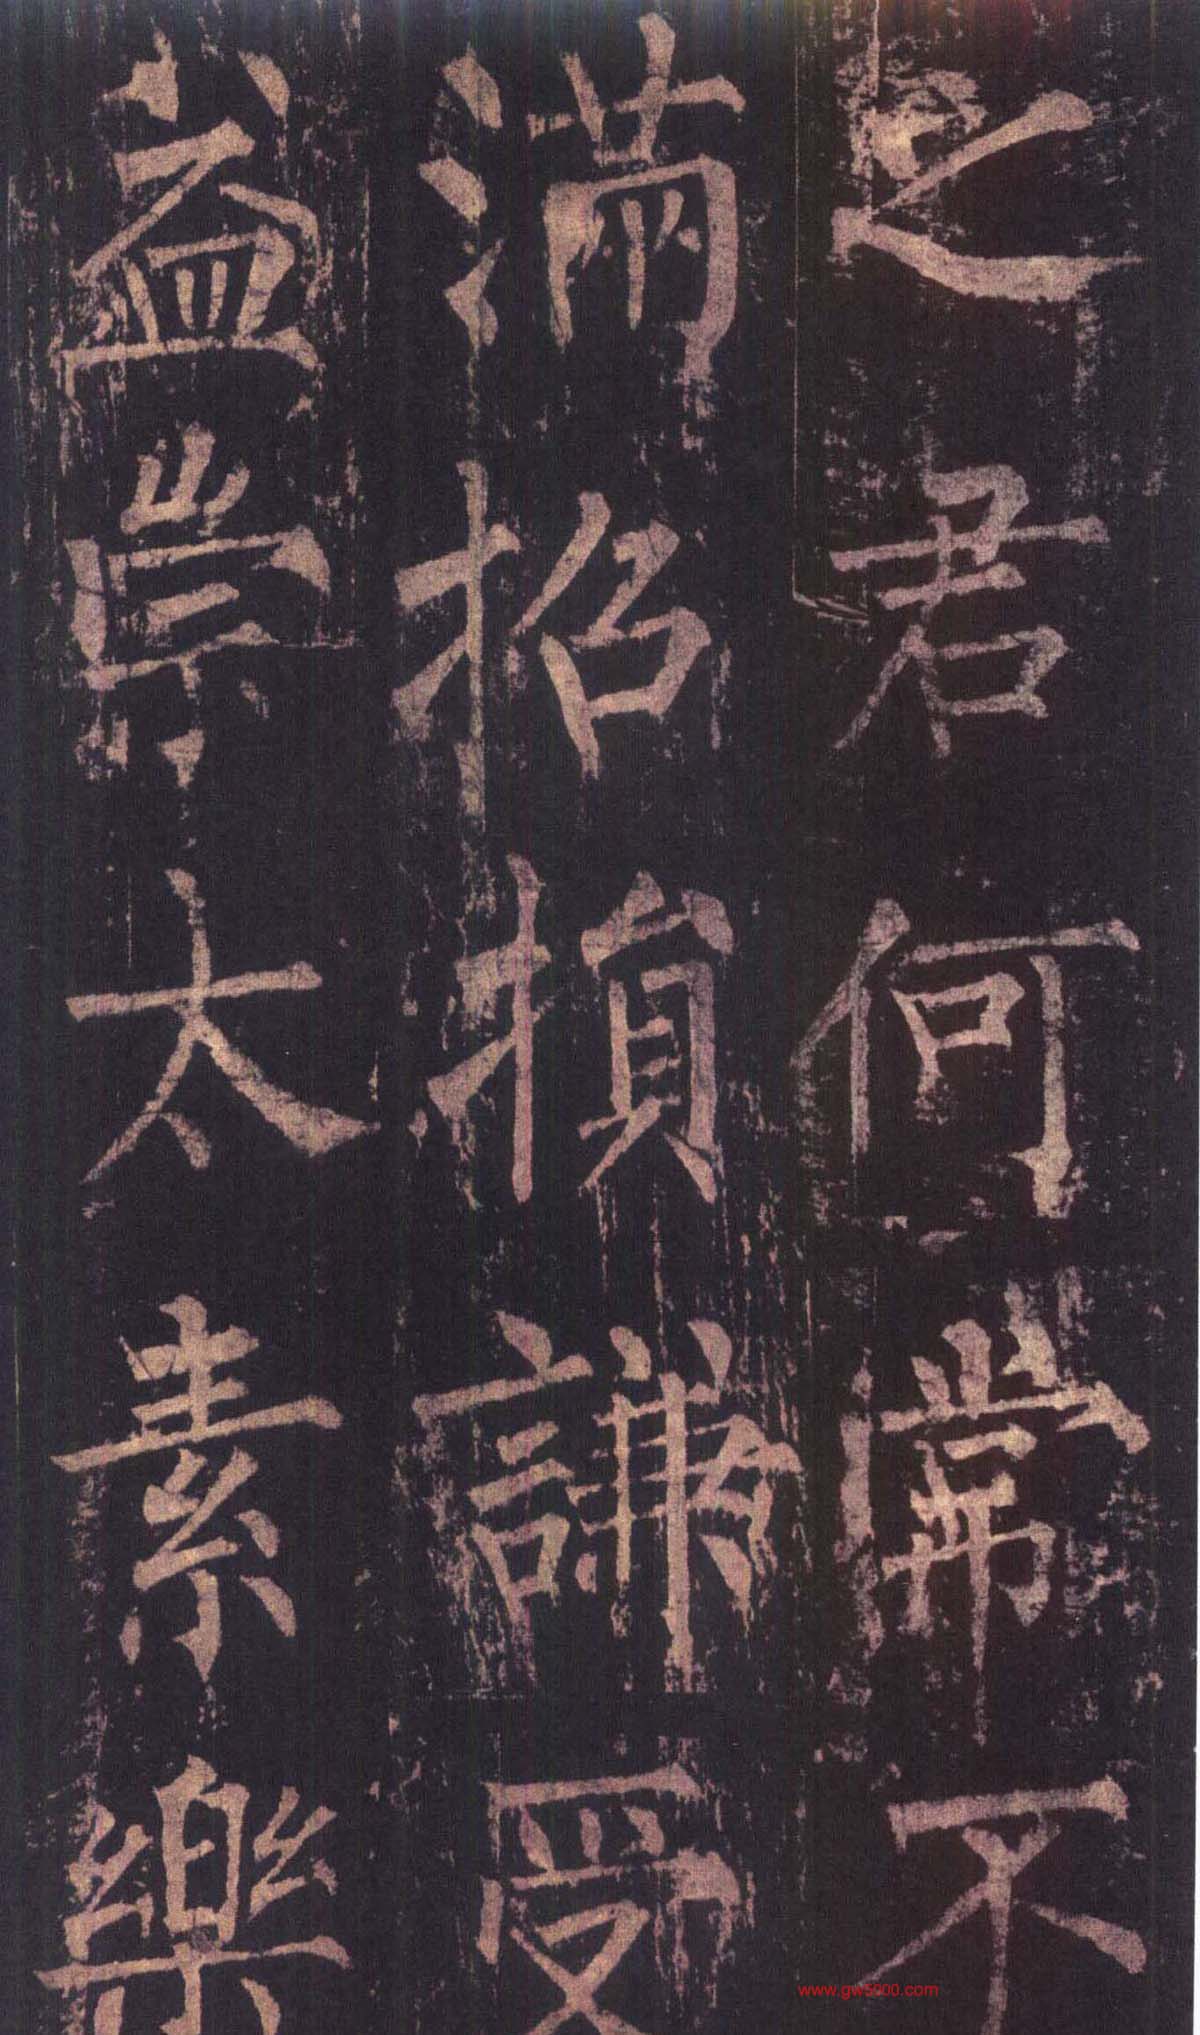 之君何常不
滿招損謙受
益崇太素樂
www.gw5000.com